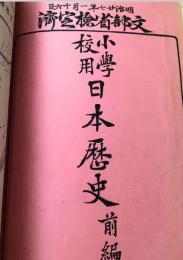 明治廿七年一月十六日
文部省檢定濟
小學校用
日本歷史
前編